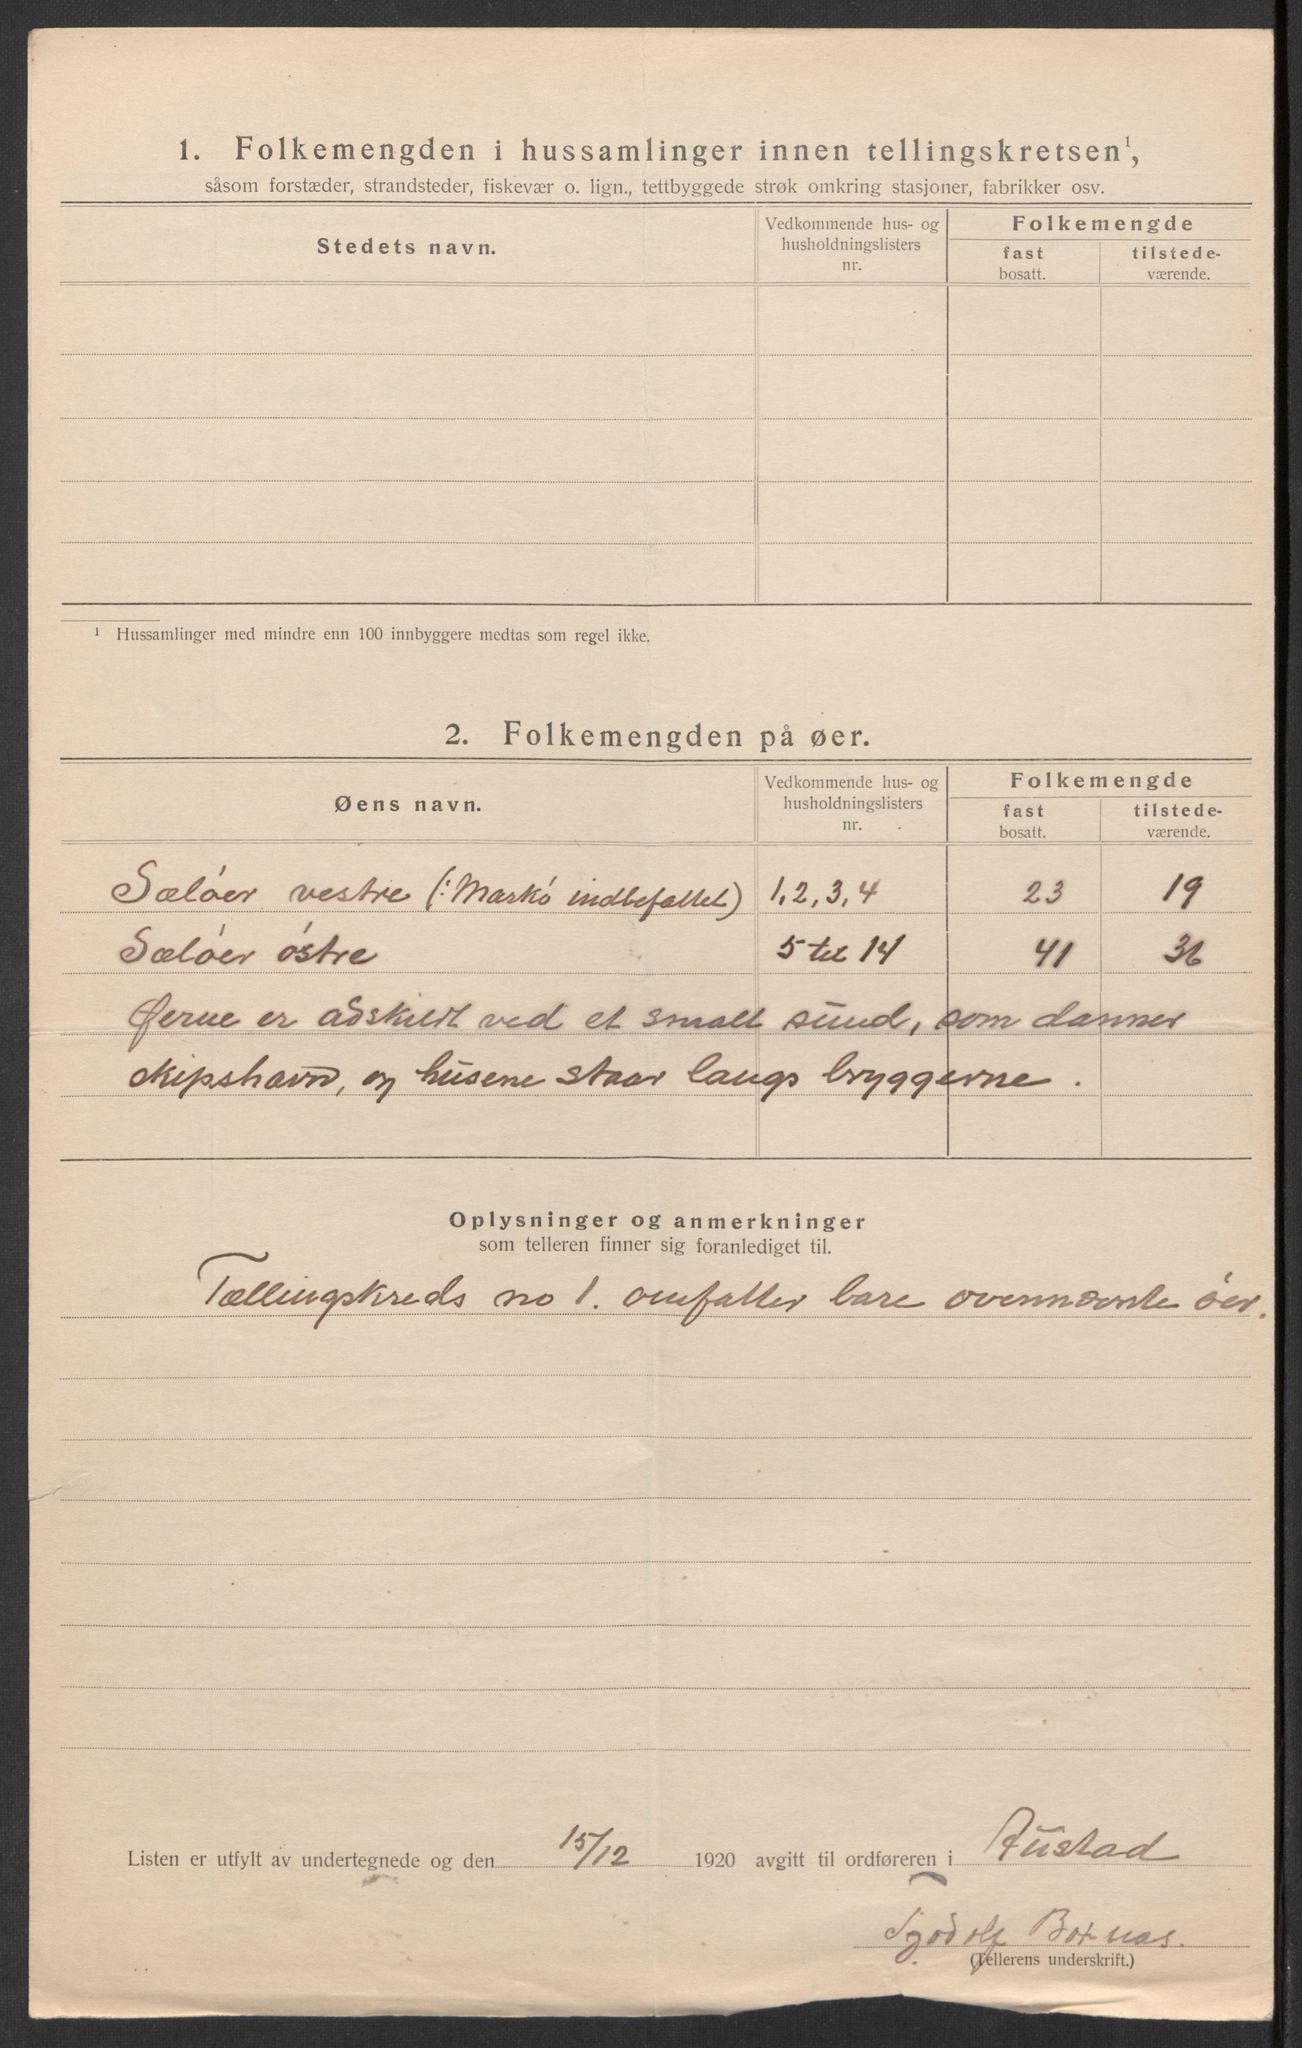 1. Folkemengden i hussamlinger innen tellingskretsen¹,
såsom forstæder, strandsteder, fiskevær o. lign., tettbyggede strøk omkring stasjoner, fabrikker osv.
Stedets navn.
Vedkommende hus- og
husholdningslisters
nr.
Folkemengde
fast
bosatt.
tilstede-
værende.
¹ Hussamlinger med mindre enn 100 innbyggere medtas som regel ikke.
2. Folkemengden på øer.
Øens navn.
Vedkommende hus- og
husholdningslisters
nr.
Folkemengde
fast
bosatt.
tilstede-
værende.
Sælöer vestre (: Markö indbefattet) 1, 2, 3, 4 23 19
Sælöer östre 5 til 14 41 36
Øerne er adskildt ved et smalt sund, som danner
skipshavn, og husene staar langs bryggerne.
Oplysninger og anmerkninger
som telleren finner sig foranlediget til.
Tællingskreds no 1. omfatter bare ovennævnte öer.
Listen er utfylt av undertegnede og den 15/12 1920 avgitt til ordføreren i Austad
(Tellerens underskrift.)